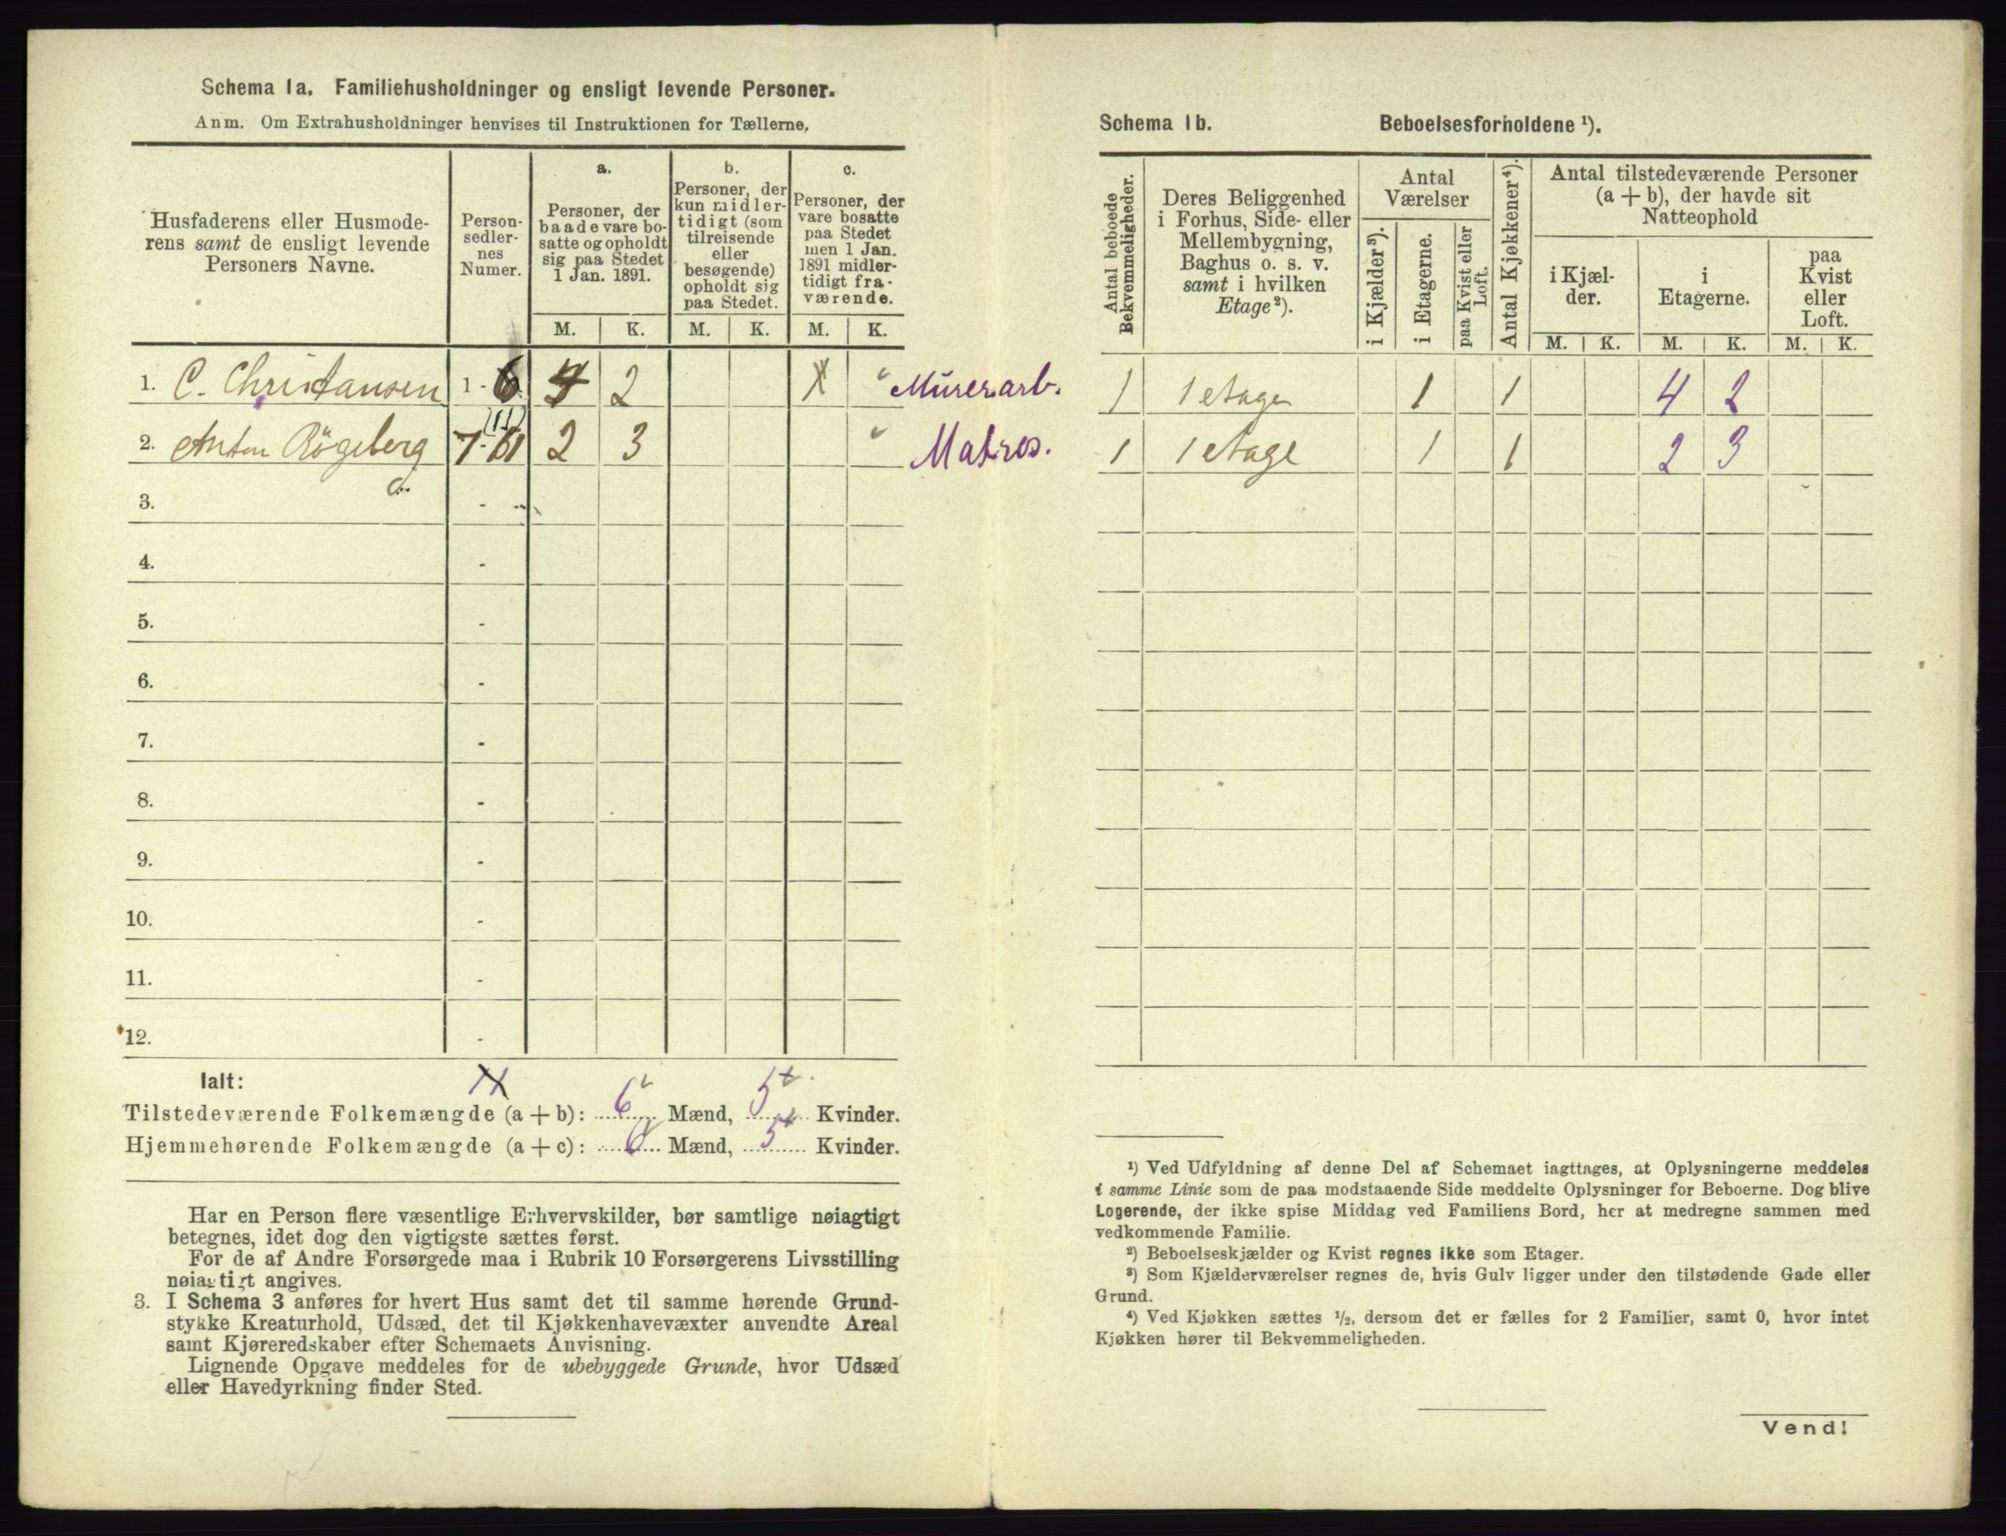 Schema 1a. Familiehusholdninger og ensligt levende Personer.
Anm. Om Extrahusholdninger henvises til Instruktionen for Tællerne.
Husfaderens eller Husmoderens samt de ensligt levende Personers Navne.
Personsedlernes Numer.
a. Personer, der baade vare bosatte og opholdt sig paa Stedet 1 Jan. 1891.
b. Personer, der kun midlertidigt (som tilreisende eller besøgende) opholdt sig paa Stedet.
c. Personer, der vare bosatte paa Stedet men 1 Jan. 1891 midlertidigt fraværende.
M. K. M. K. M. K.
1. C. Christiansen 1 - 6 4 2 X Murerarb.
2. Anton Rögeberg 7 - 11 (11) 2 3 Matros.
3. -
4. -
5. -
6. -
7. -
8. -
9. -
10. -
11. -
12. -
Ialt: 11
Tilstedeværende Folkemængde (a + b): 6 Mænd, 5 Kvinder.
Hjemmehørende Folkemængde (a + c): 6 Mænd, 5 Kvinder.
Har en Person flere væsentlige Erhvervskilder, bør samtlige nøiagtigt
betegnes, idet dog den vigtigste sættes først.
For de af Andre Forsørgede maa i Rubrik 10 Forsørgerens Livsstilling
nøiagtigt angives.
3. I Schema 3 anføres for hvert Hus samt det til samme hørende Grund-
stykke Kreaturhold, Udsæd, det til Kjøkkenhavevæxter anvendte Areal
samt Kjøreredskaber efter Schemaets Anvisning.
Lignende Opgave meddeles for de ubebyggede Grunde, hvor Udsæd
eller Havedyrkning finder Sted.
Schema 1b. Beboelsesforholdene ¹).
Antal beboede Bekvemmeligheder.
Deres Beliggenhed i Forhus, Side- eller Mellembygning, Baghus o. s. v. samt i hvilken Etage²).
Antal Værelser
i Kjælder³).
i Etagerne.
paa Kvist eller Loft.
Antal Kjøkkener⁴).
Antal tilstedeværende Personer (a + b), der havde sit Natteophold
i Kjælder.
i Etagerne.
paa Kvist eller Loft.
M. K. M. K. M. K.
1 1 etage 1 1 4 2
1 1 etage 1 1 2 3
¹) Ved Udfyldning af denne Del af Schemaet iagttages, at Oplysningerne meddeles
i samme Linie som de paa modstaaende Side meddelte Oplysninger for Beboerne. Dog blive
Logerende, der ikke spise Middag ved Familiens Bord, her at medregne sammen med
vedkommende Familie.
²) Beboelseskjælder og Kvist regnes ikke som Etager.
³) Som Kjælderværelser regnes de, hvis Gulv ligger under den tilstødende Gade eller
Grund.
⁴) Ved Kjøkken sættes ½, dersom det er fælles for 2 Familier, samt 0, hvor intet
Kjøkken hører til Bekvemmeligheden.
Vend!